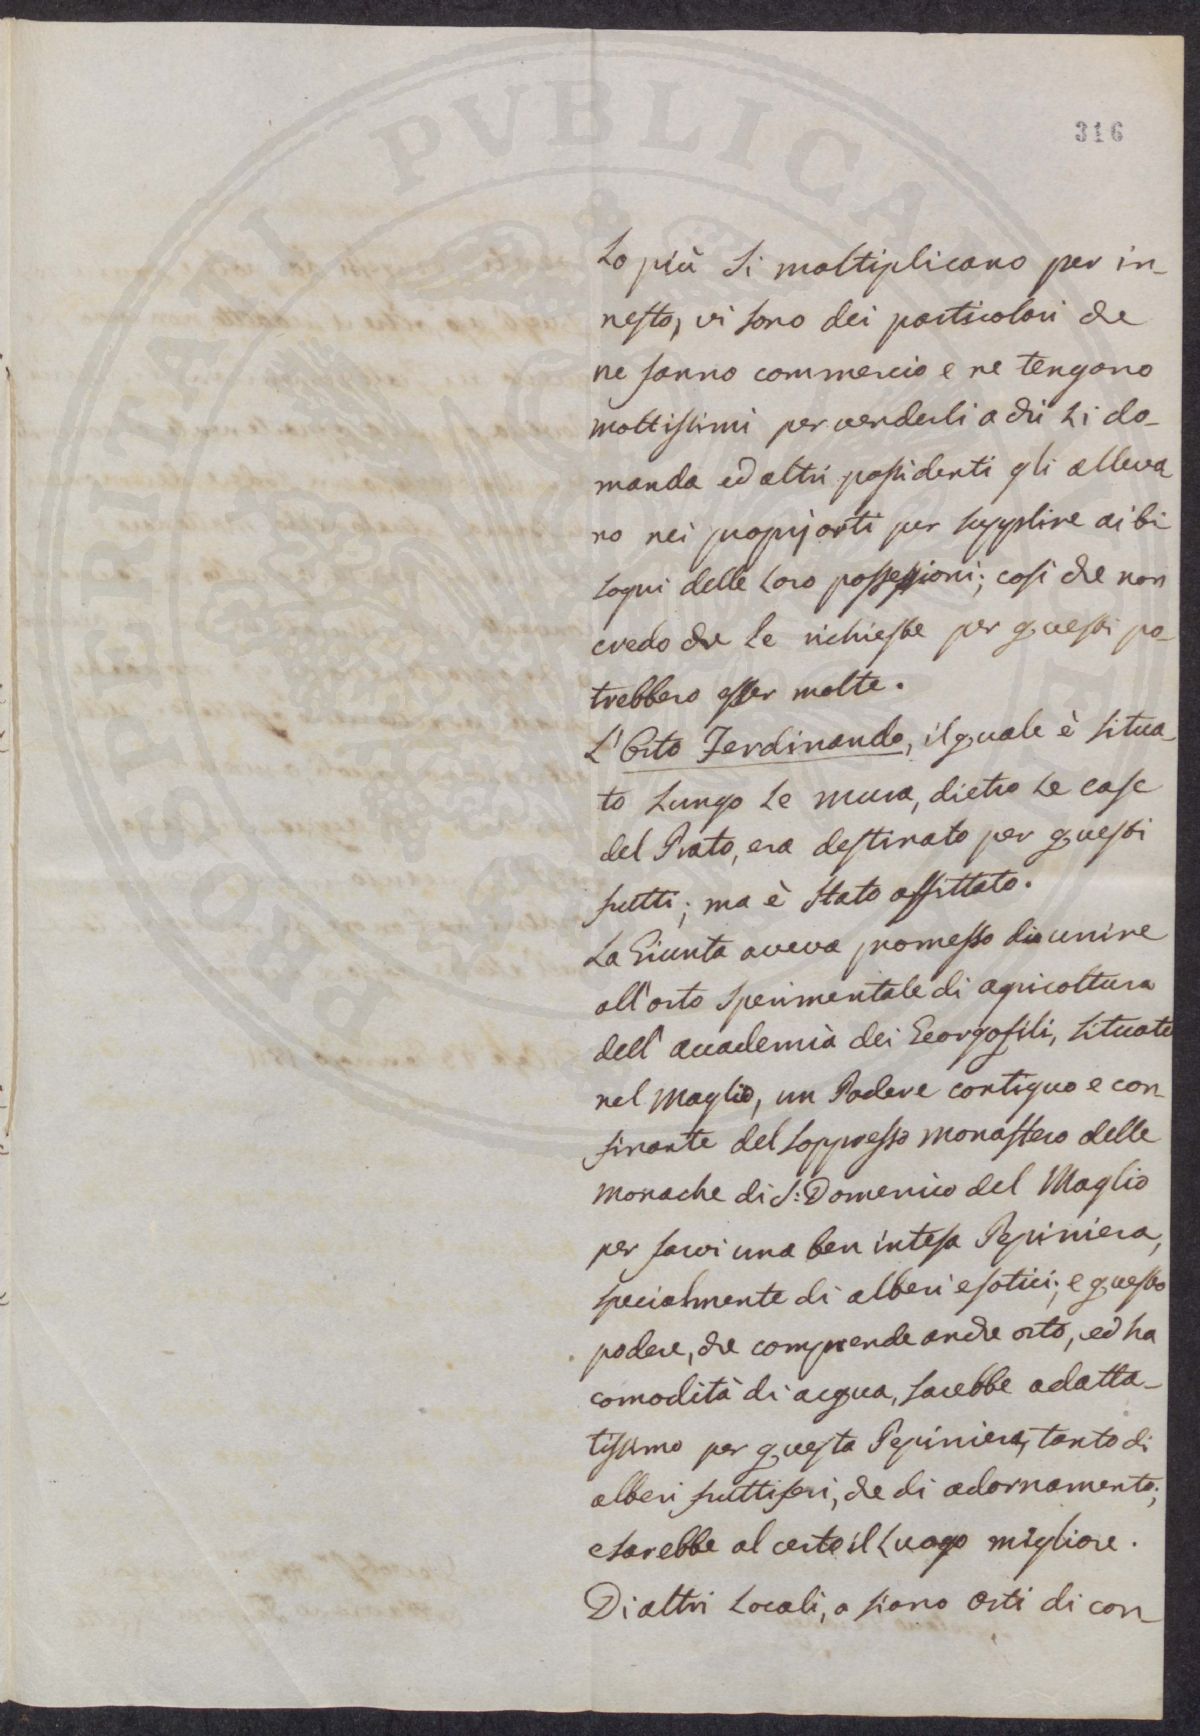 316
lo più si moltiplicano per in-
nesto, vi sono dei particolari che
ne fanno commercio e ne tengono
moltissimi per venderli a chi li do-
manda ed altri possidenti gli alleva
no nei proprj orti per supplire ai bi
sogni delle loro possessioni; così che non
credo che le richieste per questi po-
trebbero esser molte.
L'Orto Ferdinando, il quale è situa-
to lungo le mura, dietro le case
del Prato, era destinato per questi
frutti; ma è stato affittato.
La Giunta aveva promesso di unire
all'orto sperimentale di agricoltura
dell'accademia dei Georgofili, situato
nel Maglio, un Podere contiguo e con-
finante del soppresso monastero delle
monache di S: Domenico del Maglio
per farvi una ben intesa Pepiniera,
specialmente di alberi esotici; e questo
podere, che comprende anche orto, ed ha
comodità di acqua, sarebbe adatta-
tissimo per questa Pepiniera, tanto di
alberi fruttiferi, che di adornamento;
e sarebbe al certo il luogo migliore.
Di altri locali, o siano Orti di con-